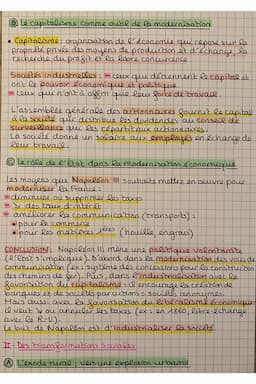 Ⓑ Le capitalisme comme outil de la modernisation
• Capitalisme : organisation de l'économie qui repose sur la
propriété privée des moyens de production et d'échange, la
recherche du profit et la libre concurrence
Sociétés industrielles : * ceux qui détiennent le capital et
ont le pouvoir économique et politique.
* ceux qui n'ont à offrir que leur force de travail.
L'assemblée générale des actionnaires fournit le capital
à la société qui distribue les dividendes au conseil de
surveillance qui les répartit aux actionnaires.
La société donne un salaire aux employés en échange de
leur travail.
Ⓒ Le rôle de l'Etat dans la modernisation économique
Les moyens que Napoléon III souhaite mettre en œuvre pour
moderniser la France :
* diminuer ou supprimer les taxes
* ↘ des taux d'intérêt
* améliorer la communication (transports) :
• pour le commerce
• pour les matières 1ères (houille, engrais)
CONCLUSION : Napoléon III mène une politique volontariste
(l'Etat s'implique). D'abord dans la modernisation des voies de
communication (ex : système des concessions pour la construction
des chemins de fer). Puis, dans l'industrialisation avec la
favorisation du capitalisme : il encourage la création de
banques et de sociétés par actions : sociétés anonymes.
Mais aussi avec la favorisation du libéralisme économique :
il veut ↘ ou annuler les taxes (ex : en 1860, libre-échange
avec le R-U).
Le but de Napoléon est d'industrialiser la société.
II - Des transformations sociales
Ⓐ L'exode rural : vers une explosion urbaine